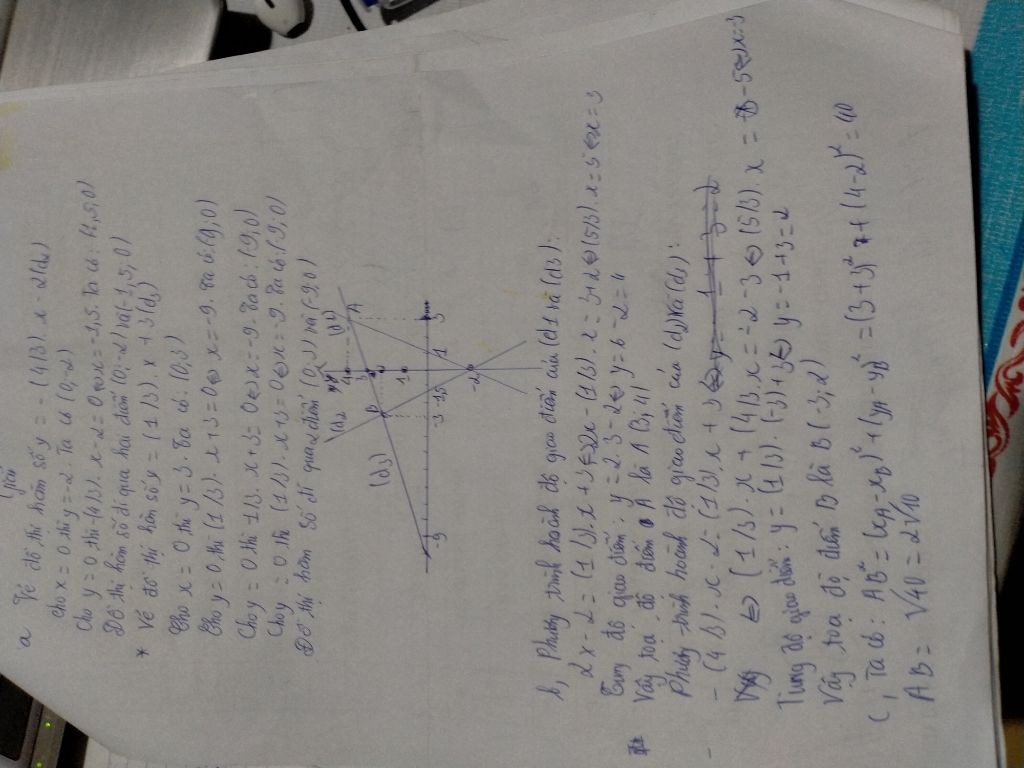 Giải
a Vẽ đồ thị hàm số y = - (4/3). x - 2 (d2)
Cho x = 0 thì y = -2. Ta có (0; -2)
Cho y = 0 thì -(4/3). x - 2 = 0 <=> x = -1,5. Ta có: (-1,5; 0)
Đồ thị hàm số đi qua hai điểm (0; -2) và (-1,5; 0)
* Vẽ đồ thị hàm số y = (1/3). x + 3 (d3)
Cho x = 0 thì y = 3. Ta có: (0; 3)
Cho y = 0 thì (1/3). x + 3 = 0 <=> x = -9. Ta có: (-9; 0)
Cho y = 0 thì 1/3). x + 3 = 0 <=> x = -9. Ta có: (-9; 0)
Cho y = 0 thì (1/3). x + 3 = 0 <=> x = -9. Ta có: (-9; 0)
Đồ thị hàm số đi qua 2 điểm (0; 3) và (-9; 0)
(d2
(d3)
A
4
3
B
1
-9
-3
-1,5
1
3
-2
b, Phương trình hoành độ giao điểm của (d1 và (d3):
2x - 2 = (1/3). x + 3 <=> 2x - (1/3). x = 3 + 2 <=> (5/3). x = 5 <=> x = 3
Tung độ giao điểm: y = 2. 3 - 2 <=> y = 6 - 2 = 4
Vậy tọa độ điểm A là A (3; 4)
Phương trình hoành độ giao điểm của (d2) và (d3):
- (4/3). x - 2 = (1/3). x + 3
<=> (1/3). x + (4/3). x = -2 - 3 <=> (5/3). x = -5 <=> x = -3
Tung độ giao điểm: y = (1/3). (-3) + 3 <=> y = -1 + 3 = 2
Vậy tọa độ điểm B là B (-3; 2)
c, Ta có: AB² = (xA - xB)² + (yA - yB)² = (3 + 3)² + (4 - 2)² = 40
AB = √40 = 2√10